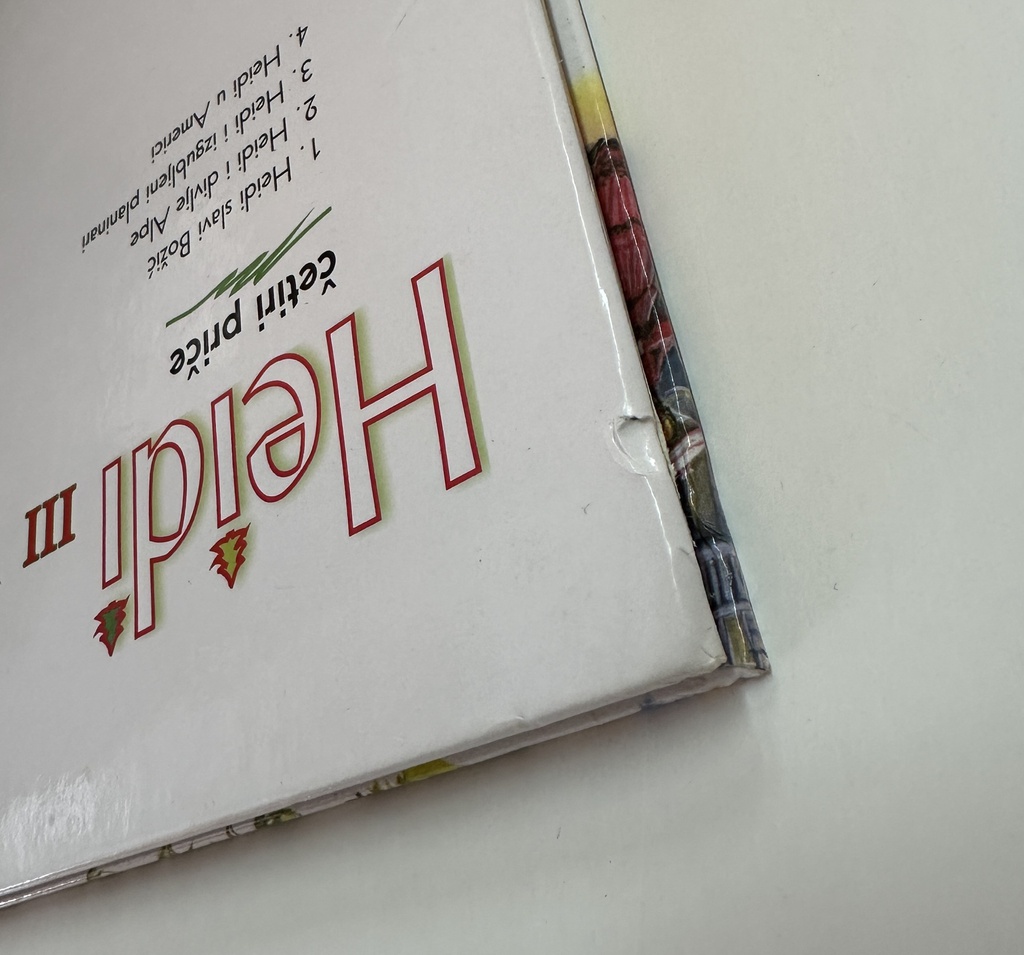 Heidi III
četiri priče
1. Heidi slavi Božić
2. Heidi i divlje Alpe
3. Heidi i izgubljeni planinari
4. Heidi u Americi